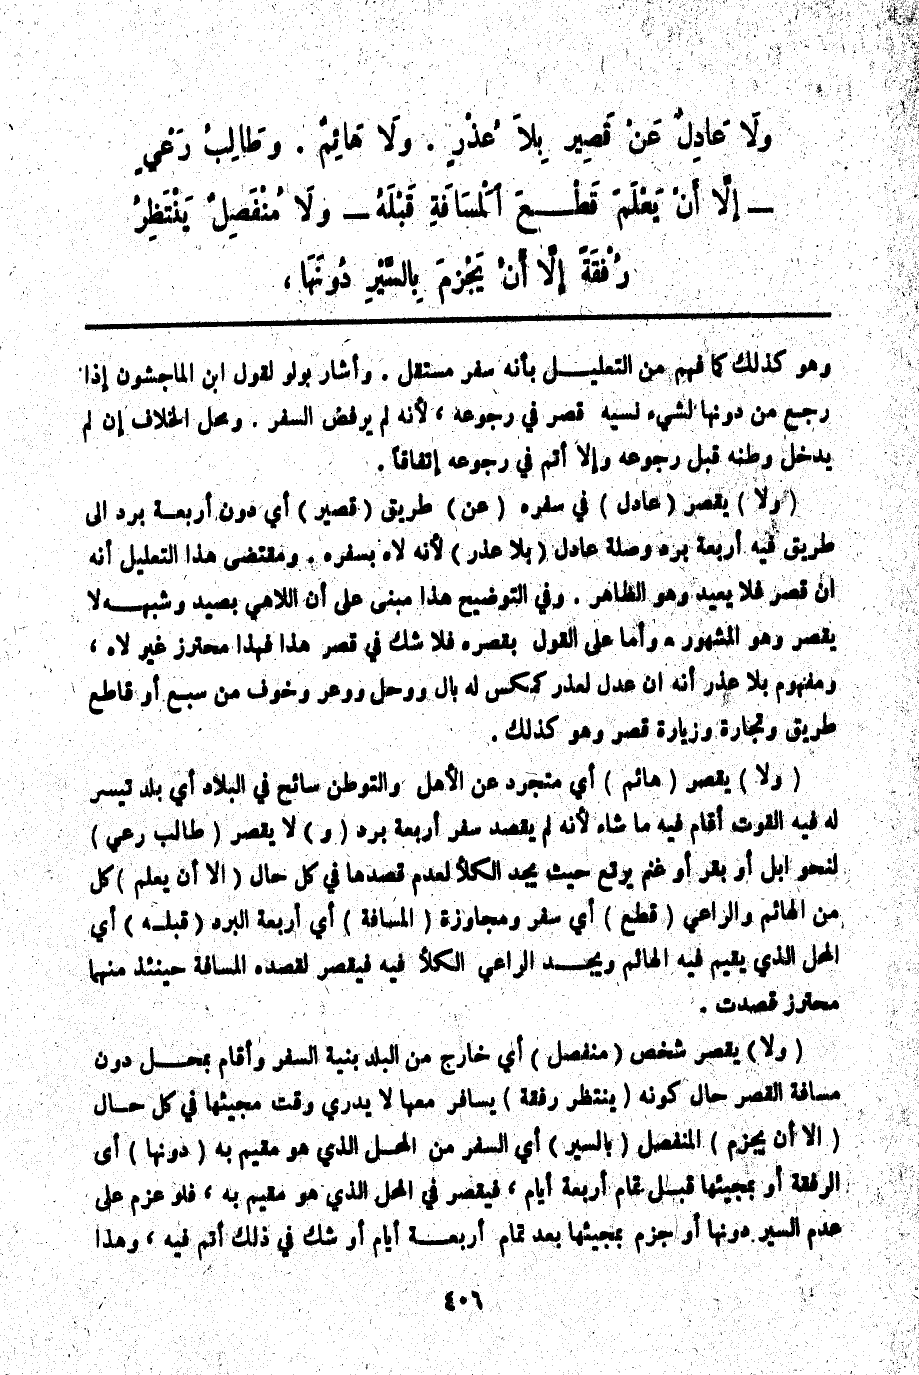 ولَا عَادِلٌ عَنْ قَصِيرٍ بِلاَ عُذْرٍ . ولَا هَائِمٌ . وطَالِبُ رَعْيٍ
— إلَّا أَنْ يَعْلَمَ قَطْعَ ٱلْمسَافَةِ قَبْلَهُ — ولَا مُنْفَصِلٌ يَنْتَظِرُ
رُفْقَةً إلَّا أَنْ يَجْزِمَ بِالسَّيْرِ دُونَهَا ،
وهو كذلك كما فهم من التعليل بأنه سفر مستقل . وأشار بولو لقول ابن الماجشون إذا
رجع من دونها لشيء نسيه قصر في رجوعه ، لأنه لم يرفض السفر . ومحل الخلاف إن لم
يدخل وطنه قبل رجوعه وإلا أتم في رجوعه إتفاقاً .
( ولا ) يقصر ( عادل ) في سفره ( عن ) طريق ( قصير ) أي دون أربعة برد الى
طريق فيه أربعة برد وصلة عادل ( بلا عذر ) لأنه لاه بسفره . ومقتضى هذا التعليل أنه
ان قصر فلا يعيد وهو الظاهر . وفي التوضيح هذا مبنى على أن اللاهي بصيد وشبهه لا
يقصر وهو المشهور ه وأما على القول بقصره فلا شك في قصر هذا فهذا محترز غير لاه ،
ومفهوم بلا عذر أنه ان عدل لعذر كمكس له بال ووحل ووعر وخوف من سبع أو قاطع
طريق وتجارة وزيارة قصر وهو كذلك .
( ولا ) يقصر ( هائم ) أي متجرد عن الأهل والتوطن سائح في البلاد أي بلد تيسر
له فيه القوت أقام فيه ما شاء لأنه لم يقصد سفر أربعة برد ( و ) لا يقصر ( طالب رعي )
لنحو ابل أو بقر أو غنم يرتع حيث يجد الكلأ لعدم قصدها في كل حال ( الا أن يعلم ) كل
من الهائم والراعي ( قطع ) أي سفر ومجاوزة ( المسافة ) أي أربعة البرد ( قبله ) أي
المحل الذي يقيم فيه الهائم ويجد الراعي الكلأ فيه فيقصر لقصده المسافة حينئذ منها
محترز قصدت .
( ولا ) يقصر شخص ( منفصل ) أي خارج من البلد بنية السفر وأقام بمحل دون
مسافة القصر حال كونه ( ينتظر رفقة ) يسافر معها لا يدري وقت مجيئها في كل حال
( الا أن يجزم ) المنفصل ( بالسير ) أي السفر من المحل الذي هو مقيم به ( دونها ) أى
الرفقة أو بمجيئها قبل تمام أربعة أيام ، فيقصر في المحل الذي هو مقيم به ، فلو عزم على
عدم السير دونها أو جزم بمجيئها بعد تمام أربعة أيام أو شك في ذلك أتم فيه ، وهذا
٤٠٦